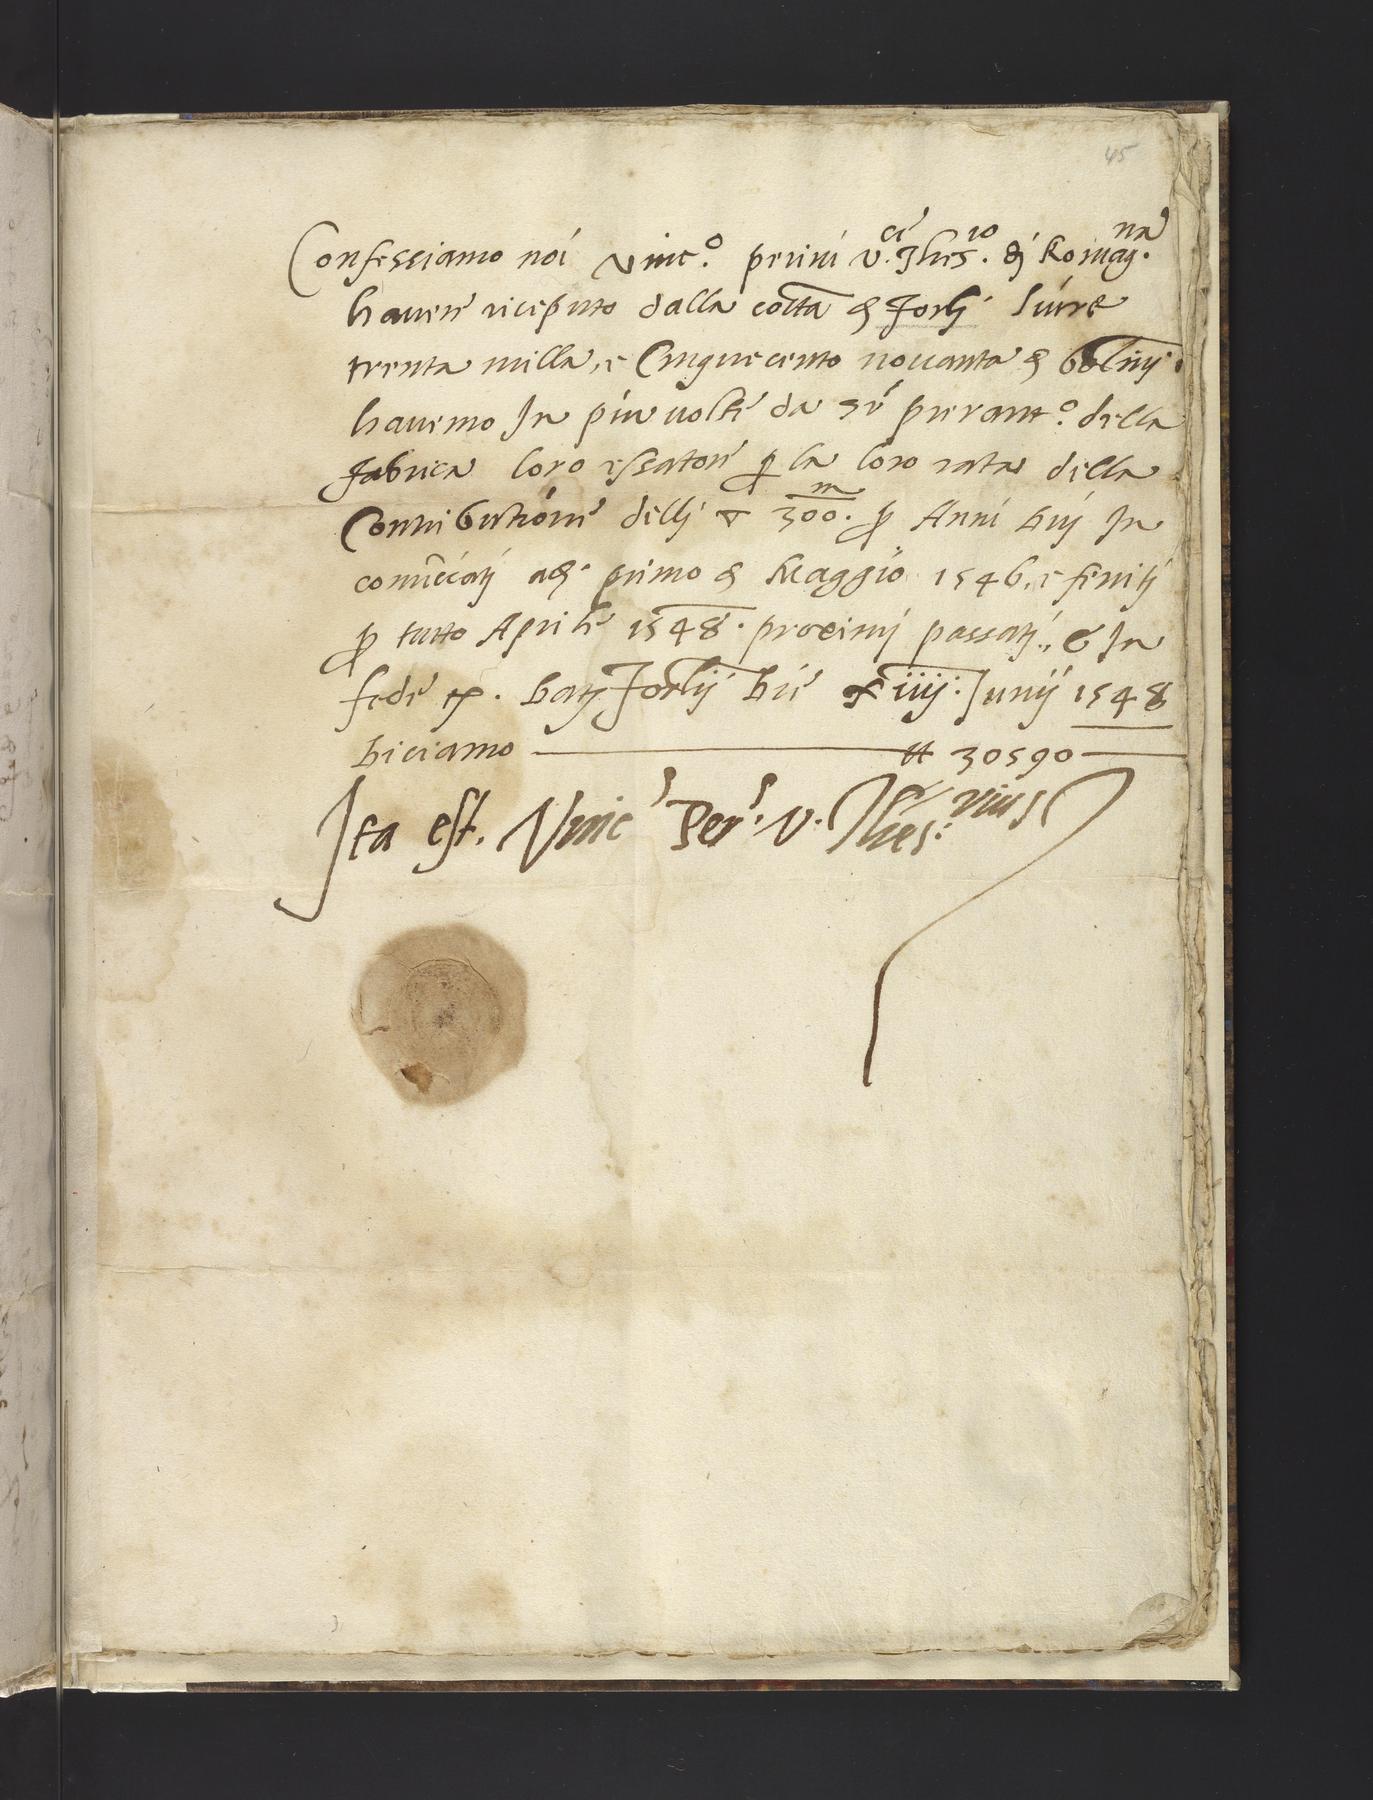 45
Confessiamo noi Vinc.o perini v.ce Thes.io di Romag.na
havere riceputo dalla co͞ita di Forlj livre
trenta milla, e Cinquecento novanta di bol.nj
havemo In piu volte da sr pierant.o della
fabrica loro essatore p la loro rata della
Contributione dellj ▽ 300.m p Anni duj In
comẽciatj adi primo di Maggio 1546, e finitj
p tutto Aprile 1548. proximj passatj, & In
fede &. Datj Forlij Die xiiij: Junij 1548
diciamo ₶ 30590
Ita est. Vinc.s Per.s v. Thes:rius